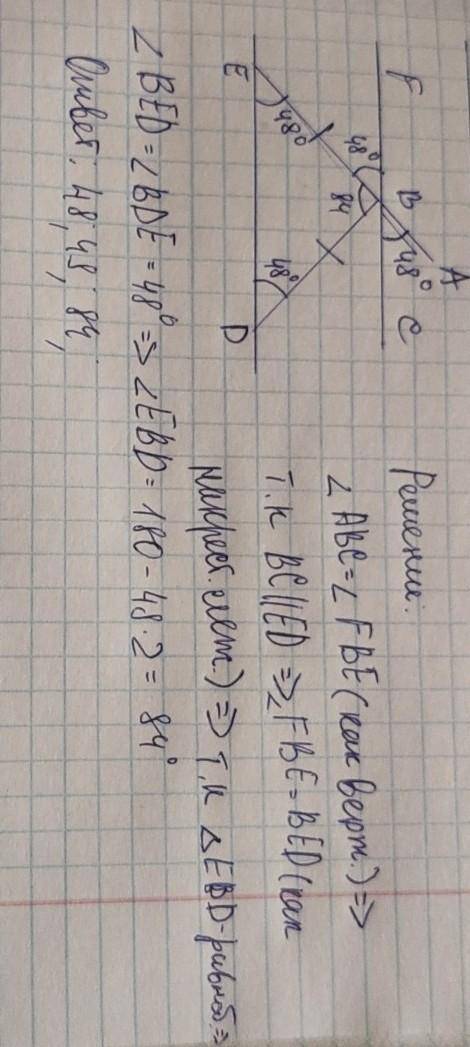 F B A
48° 84 48° C
48° 48°
E D
Решение:
∠ ABC = ∠ FBE (как верт.) =>
т.к BC || ED => ∠ FBE = BED (как
накрест. леж.) => т.к △ EBD-равноб. =>
∠ BED = ∠ BDE = 48° => ∠ EBD = 180 - 48 · 2 = 84°
Ответ: 48; 48; 84;